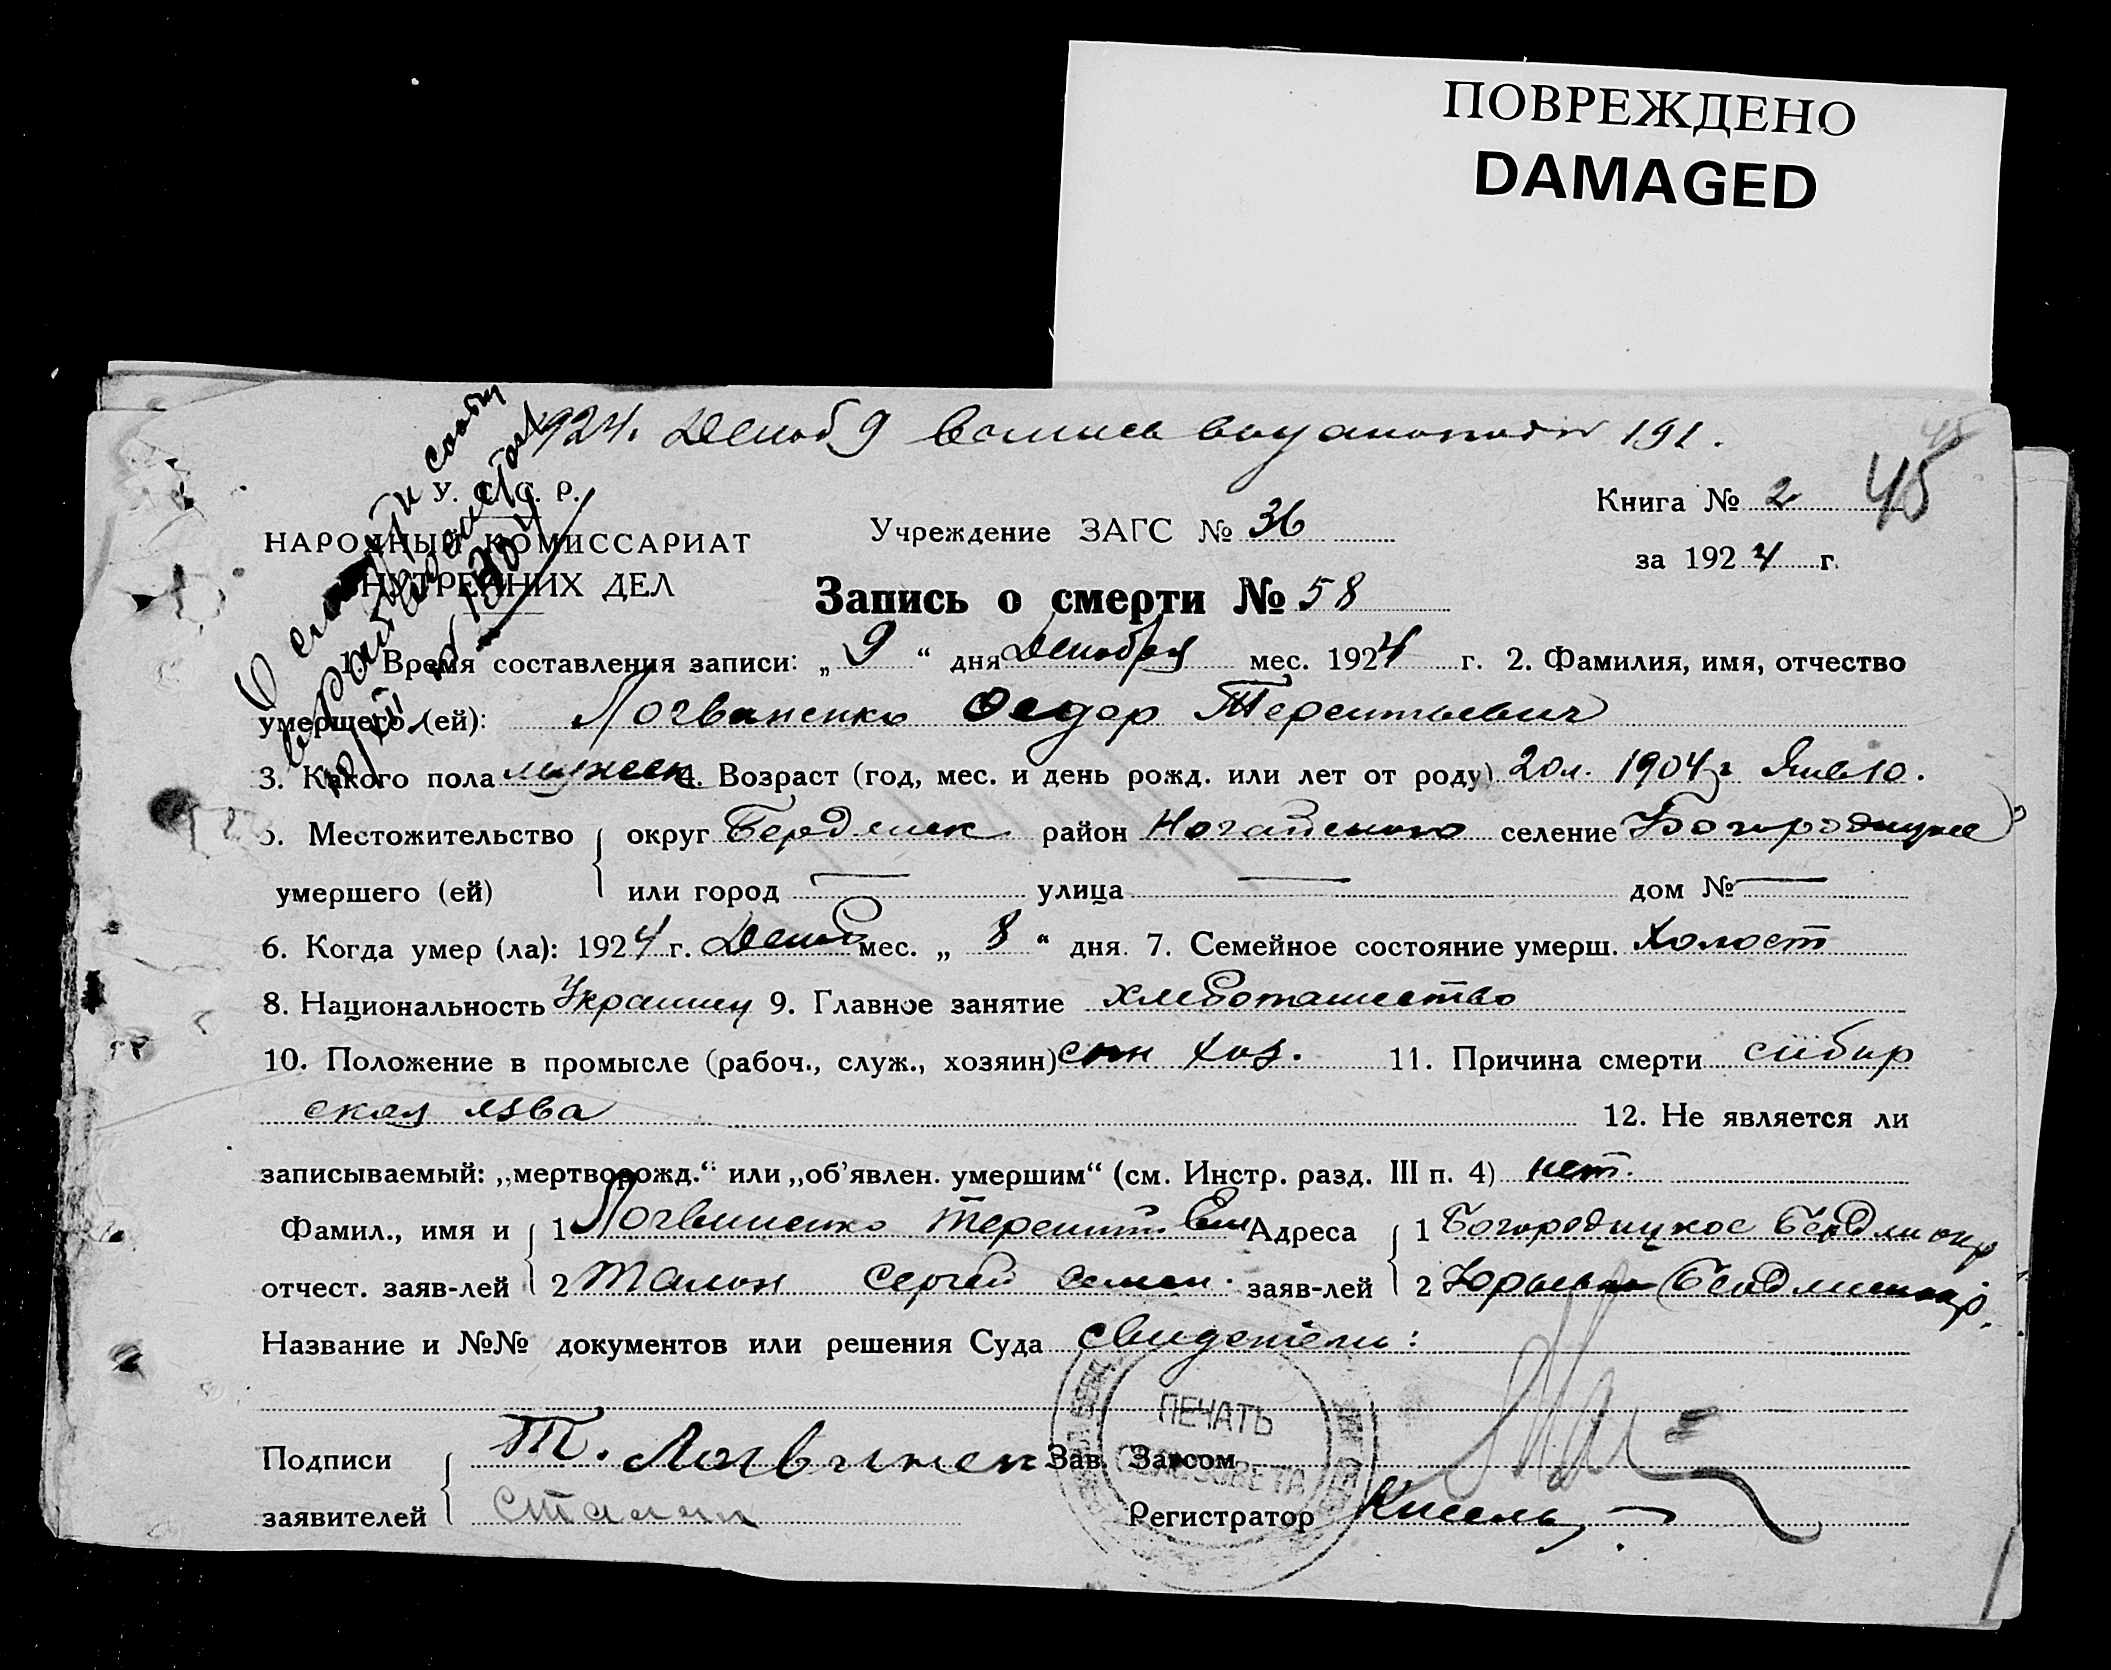 ПОВРЕЖДЕНО
DAMAGED
1924. Декаб 9 191.
45
У. С. С. Р.
НАРОДНЫЙ КОМИССАРИАТ
ВНУТРЕННИХ ДЕЛ
О смерти сообщ
Учреждение ЗАГС № 36
Книга № 2
за 1924 г.
Запись о смерти № 58
1. Время составления записи: „ 9 “ дня Декабря мес. 1924 г. 2. Фамилия, имя, отчество
умершего (ей): Логвиненко Федор Терентьевич
3. Какого пола мужск 4. Возраст (год, мес. и день рожд. или лет от роду) 20л. 1904г Янв 10.
5. Местожительство округ Бердянск район Ногайского селение Богородицкое
умершего (ей) или город — улица — дом № —
6. Когда умер (ла): 1924 г. Декаб мес. „ 8 “ дня. 7. Семейное состояние умерш. Холост
8. Национальность Украинец 9. Главное занятие хлебопашество
10. Положение в промысле (рабоч., служ., хозяин) сын хоз. 11. Причина смерти сибир
ская язва 12. Не является ли
записываемый: „мертворожд.“ или „об’явлен. умершим“ (см. Инстр. разд. III п. 4) нет.
Фамил., имя и 1 Логвиненко Терентий Адреса 1 Богородицкое Бердян окр
отчест. заяв-лей 2 Талон Сергей Семен. заяв-лей 2 Юрьевка Бердянск окр.
Название и №№ документов или решения Суда свидетели:
ПЕЧАТЬ
СЕЛЬСОВЕТА
Подписи Т. Логвинен Зав. Загсом
заявителей Регистратор Кисель